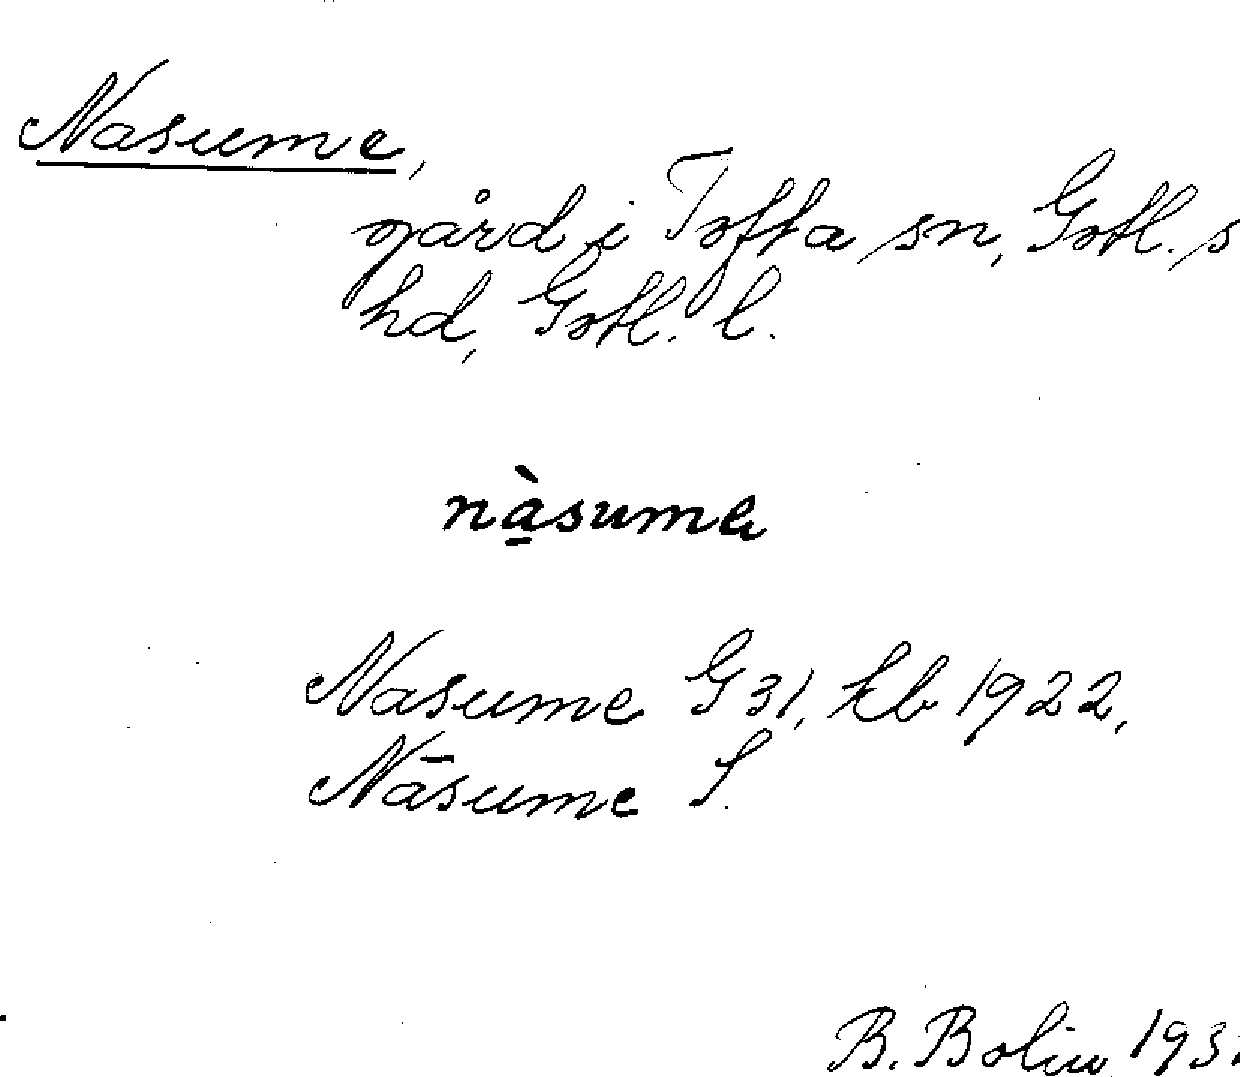 Nasume,
gård i Tofta sn, Gotl. s
hd, Gotl. l.
nàsume
Nasume G 31, kb 1922,
Nāsume S.
B. Bolin